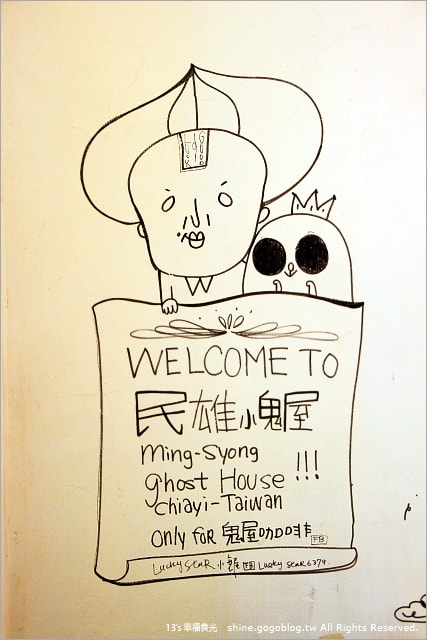 WELCOME TO
民雄小鬼屋
Ming-Syong
ghost House !!!
chiayi-Taiwan
Only for 鬼屋咖啡
Lucky StaR 小 Lucky StaR6379
13's幸福食光 shine.gogoblog.tw All Rights Reserved.